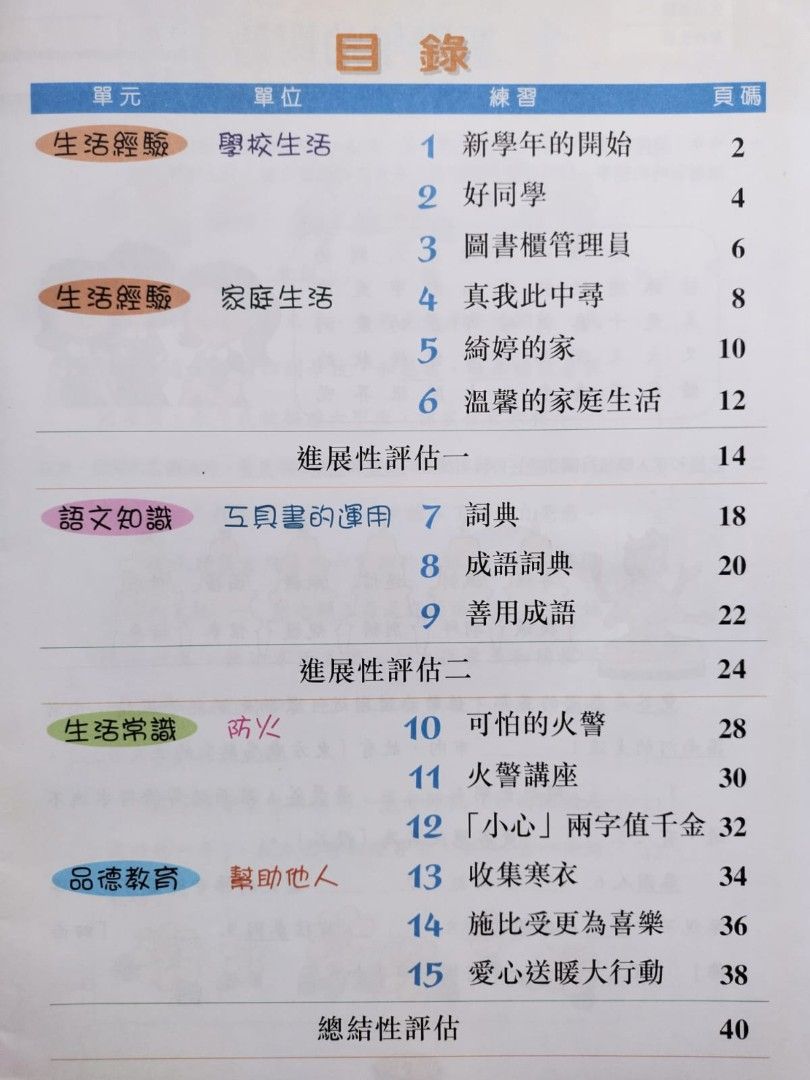 目錄
單元 單位 練習 頁碼
生活經驗 學校生活 1 新學年的開始 2
2 好同學 4
3 圖書櫃管理員 6
生活經驗 家庭生活 4 真我此中尋 8
5 綺婷的家 10
6 溫馨的家庭生活 12
進展性評估一 14
語文知識 工具書的運用 7 詞典 18
8 成語詞典 20
9 善用成語 22
進展性評估二 24
生活常識 防火 10 可怕的火警 28
11 火警講座 30
12 「小心」兩字值千金 32
品德教育 幫助他人 13 收集寒衣 34
14 施比受更為喜樂 36
15 愛心送暖大行動 38
總結性評估 40